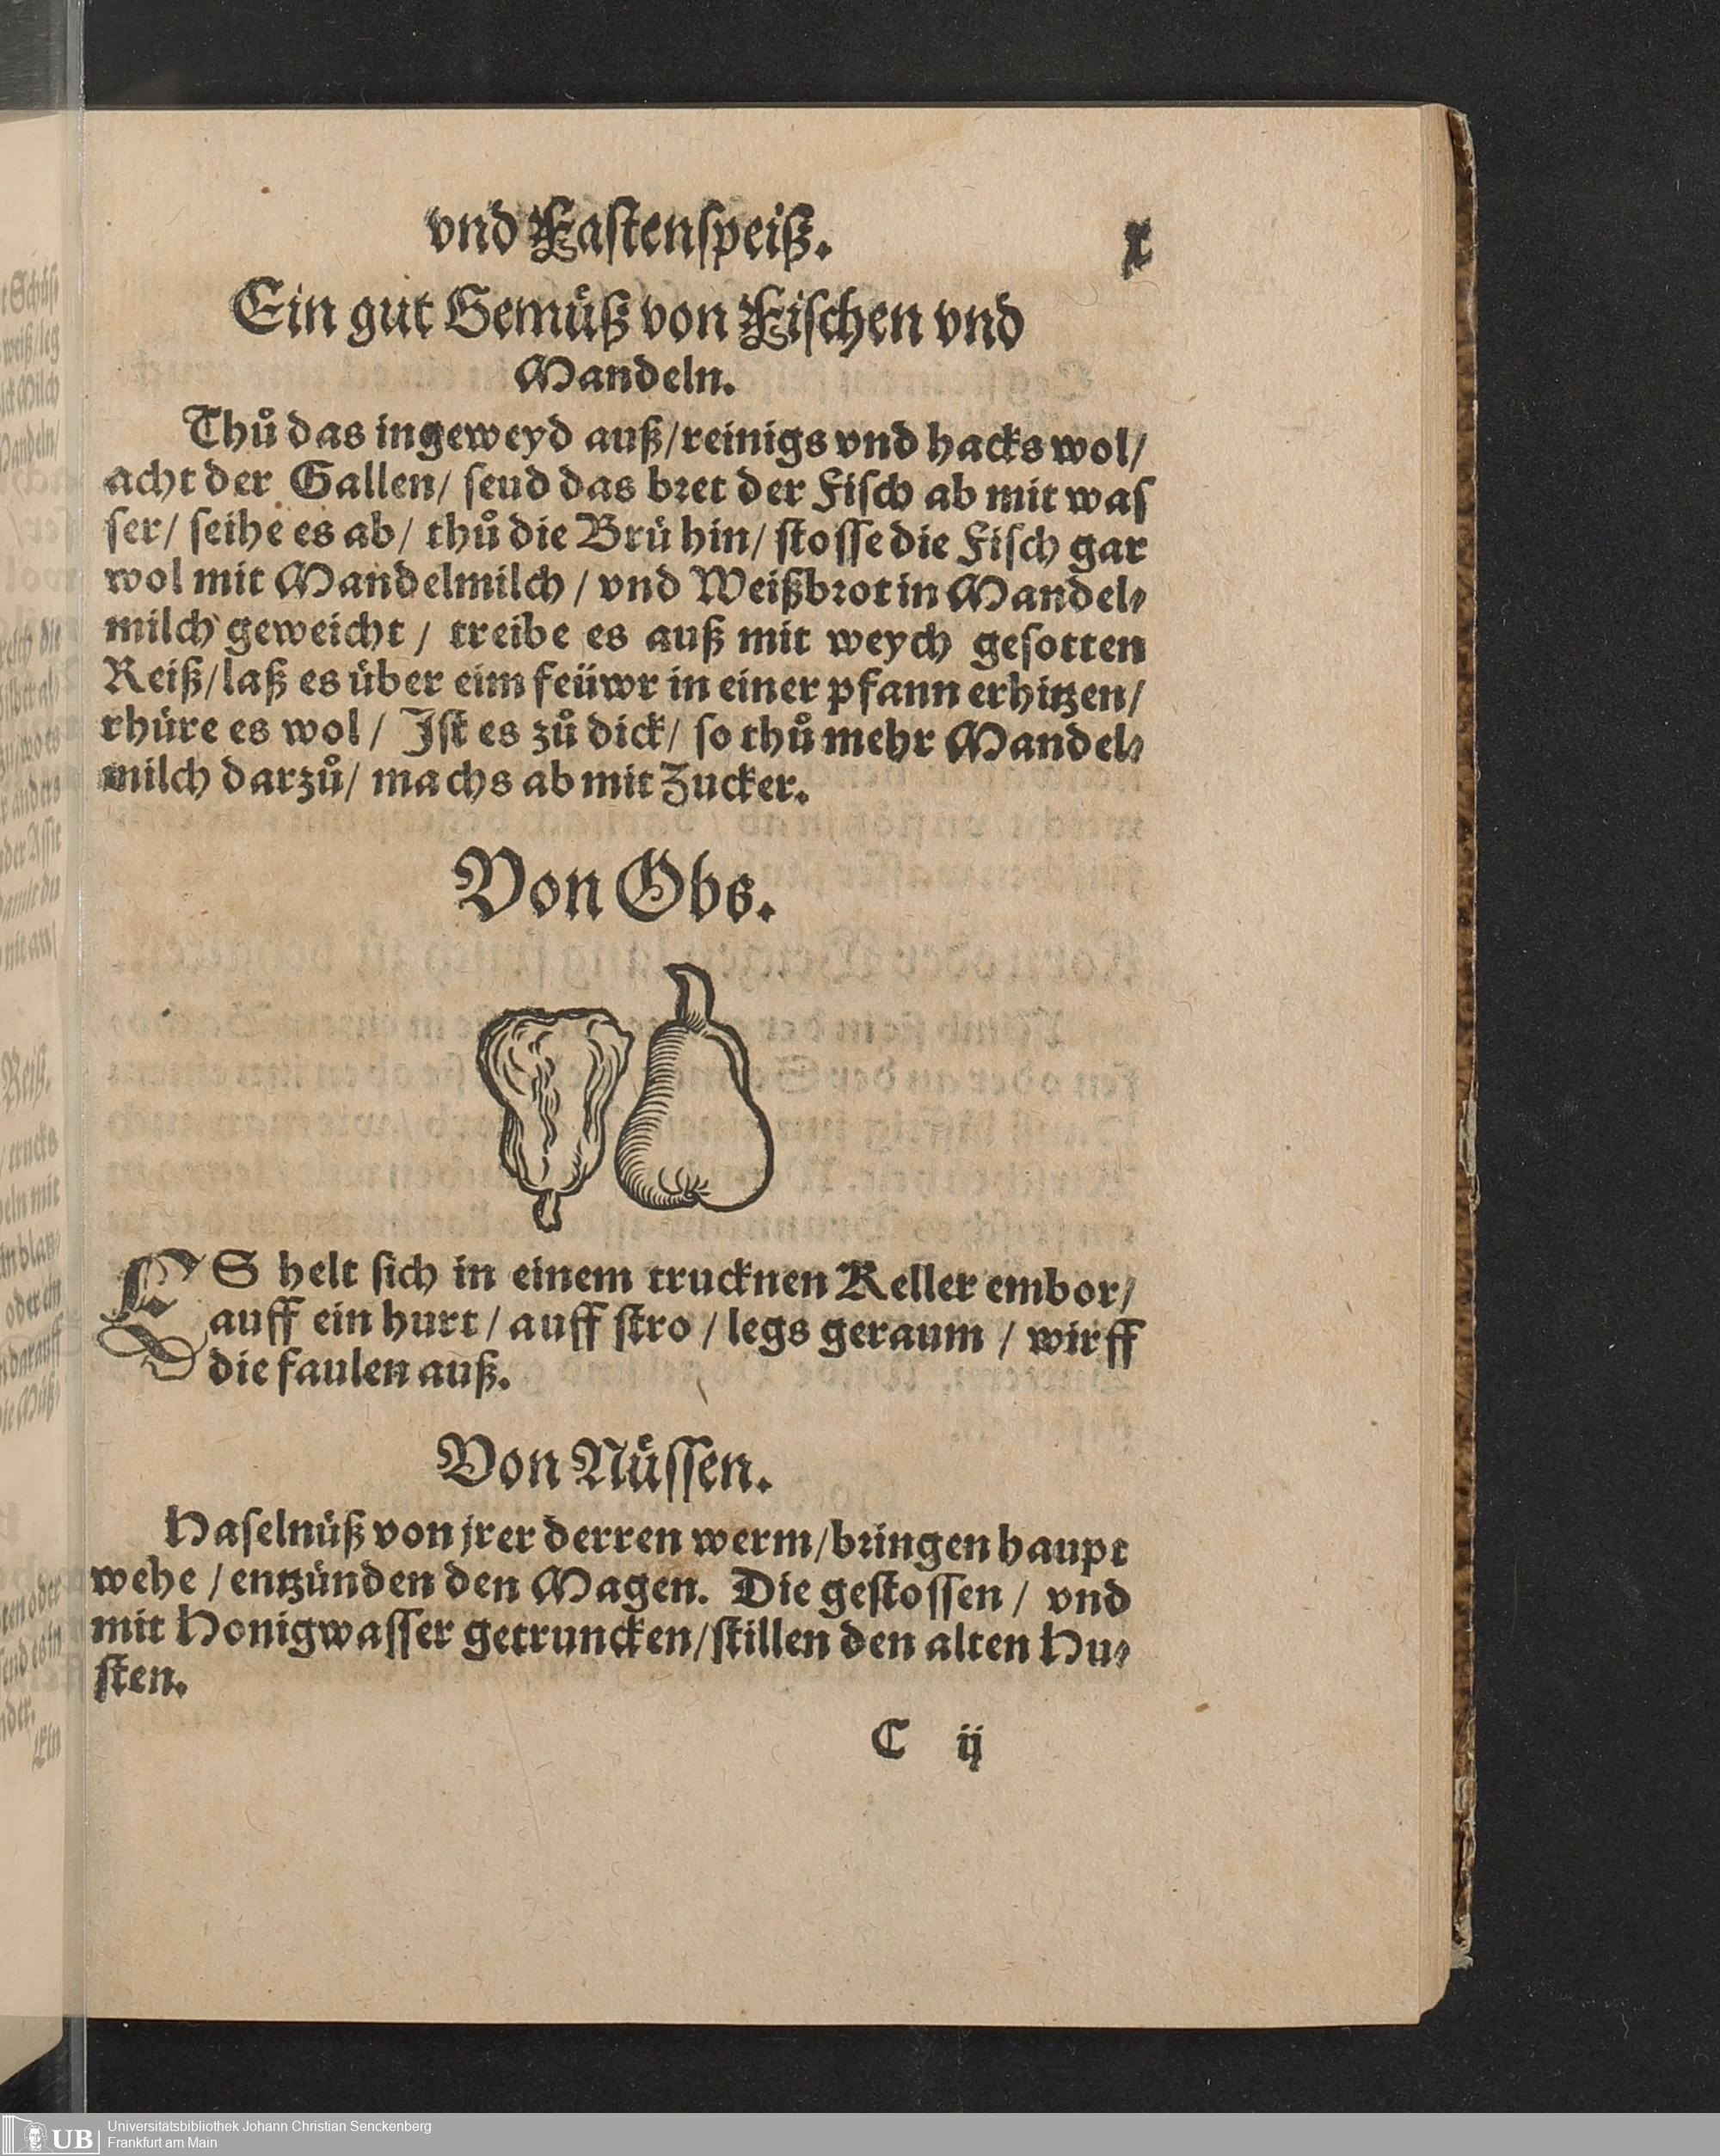 vnd Fastenspeiß. x
Ein gut Gemuͤß von Fischen vnd
Mandeln.
Thuͦ das ingeweyd auß/reinigs vnd hacks wol/
acht der Gallen/ seud das bret der Fisch ab mit was
ser/ seihe es ab/ thuͦ die Bruͤ hin/ stosse die Fisch gar
wol mit Mandelmilch / vnd Weißbrot in Mandel⸗
milch geweicht / treibe es auß mit weych gesotten
Reiß/laß es über eim feüwr in einer pfann erhitzen/
rhüre es wol / Ist es zuͦ dick/ so thuͦ mehr Mandel⸗
milch darzuͦ/ machs ab mit Zucker.
Von Obs.
ES helt sich in einem trucknen Keller embor/
auff ein hurt / auff stro / legs geraum / wirff
die faulen auß.
Von Nuͤssen.
Haselnuͤß von jrer derren werm/bringen haupt
wehe / entzünden den Magen. Die gestossen / vnd
mit Honigwasser getruncken/stillen den alten Hu⸗
sten.
C ij
UB Universitätsbibliothek Johann Christian Senckenberg
Frankfurt am Main